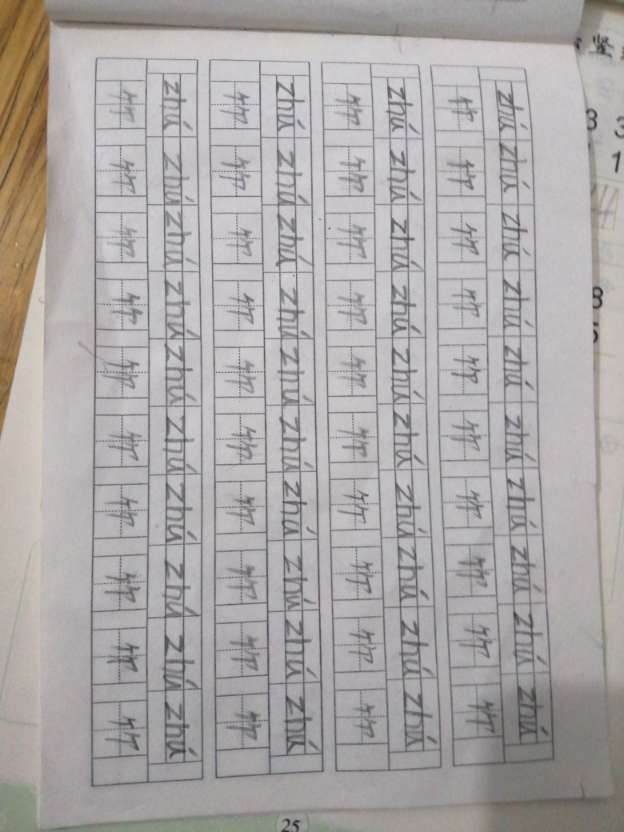 zhú zhú zhú zhú zhú zhú zhú zhú zhú zhú
竹 竹 竹 竹 竹 竹 竹 竹 竹 竹
zhú zhú zhú zhú zhú zhú zhú zhú zhú zhú
竹 竹 竹 竹 竹 竹 竹 竹 竹 竹
zhú zhú zhú zhú zhú zhú zhú zhú zhú zhú
竹 竹 竹 竹 竹 竹 竹 竹 竹 竹
zhú zhú zhú zhú zhú zhú zhú zhú zhú zhú
竹 竹 竹 竹 竹 竹 竹 竹 竹 竹
25
竖
3 3
1
8
5